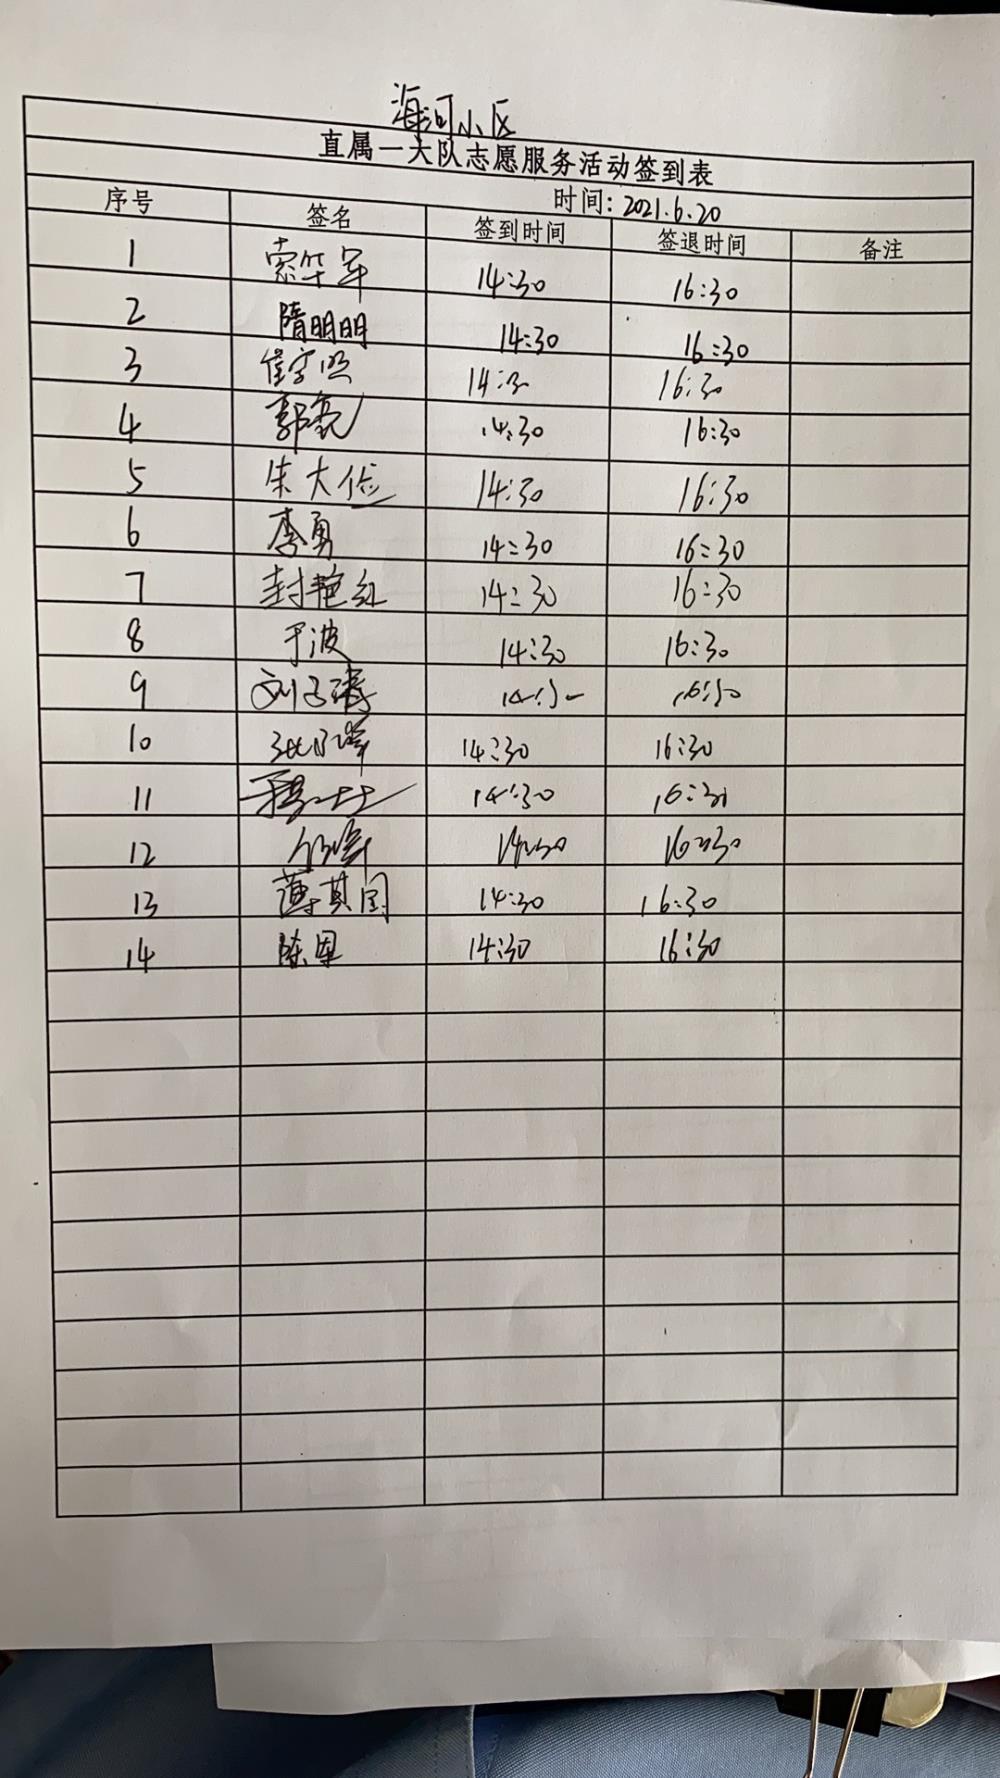 海河小区
直属一大队志愿服务活动签到表
时间: 2021.6.20
序号 签名 签到时间 签退时间 备注
1 索华军 14:30 16:30
2 隋明明 14:30 16:30
3 14:30 16:30
4 郭亮 14:30 16:30
5 朱大俭 14:30 16:30
6 李勇 14:30 16:30
7 封艳红 14:30 16:30
8 于波 14:30 16:30
9 14:30 16:30
10 14:30 16:30
11 14:30 16:30
12 14:30 16:30
13 薄其国 14:30 16:30
14 陈恩 14:30 16:30